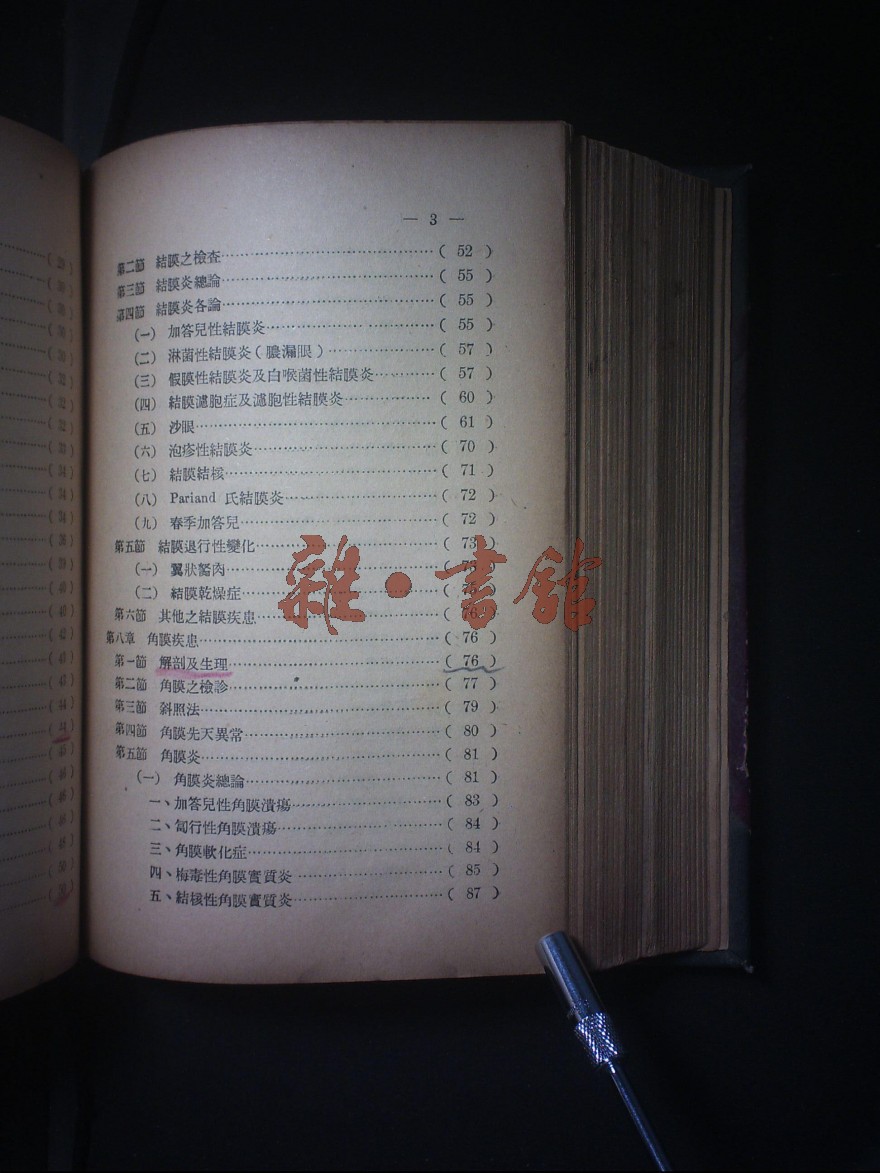 — 3 —
第二節 結膜之檢查 ( 52 )
第三節 結膜炎總論 ( 55 )
第四節 結膜炎各論 ( 55 )
(一) 加答兒性結膜炎 ( 55 )
(二) 淋菌性結膜炎(膿漏眼) ( 57 )
(三) 假膜性結膜炎及白喉菌性結膜炎 ( 57 )
(四) 結膜濾胞症及濾胞性結膜炎 ( 60 )
(五) 沙眼 ( 61 )
(六) 泡疹性結膜炎 ( 70 )
(七) 結膜結核 ( 71 )
(八) Pariand 氏結膜炎 ( 72 )
(九) 春季加答兒 ( 72 )
第五節 結膜退行性變化 ( 73 )
(一) 翼狀胬肉
(二) 結膜乾燥症 ( 75 )
第六節 其他之結膜疾患 ( 76 )
第八章 角膜疾患 ( 76 )
第一節 解剖及生理 ( 76 )
第二節 角膜之檢診 ( 77 )
第三節 斜照法 ( 79 )
第四節 角膜先天異常 ( 80 )
第五節 角膜炎 ( 81 )
(一) 角膜炎總論 ( 81 )
一、加答兒性角膜潰瘍 ( 83 )
二、匐行性角膜潰瘍 ( 84 )
三、角膜軟化症 ( 84 )
四、梅毒性角膜實質炎 ( 85 )
五、結核性角膜實質炎 ( 87 )
雜·書館